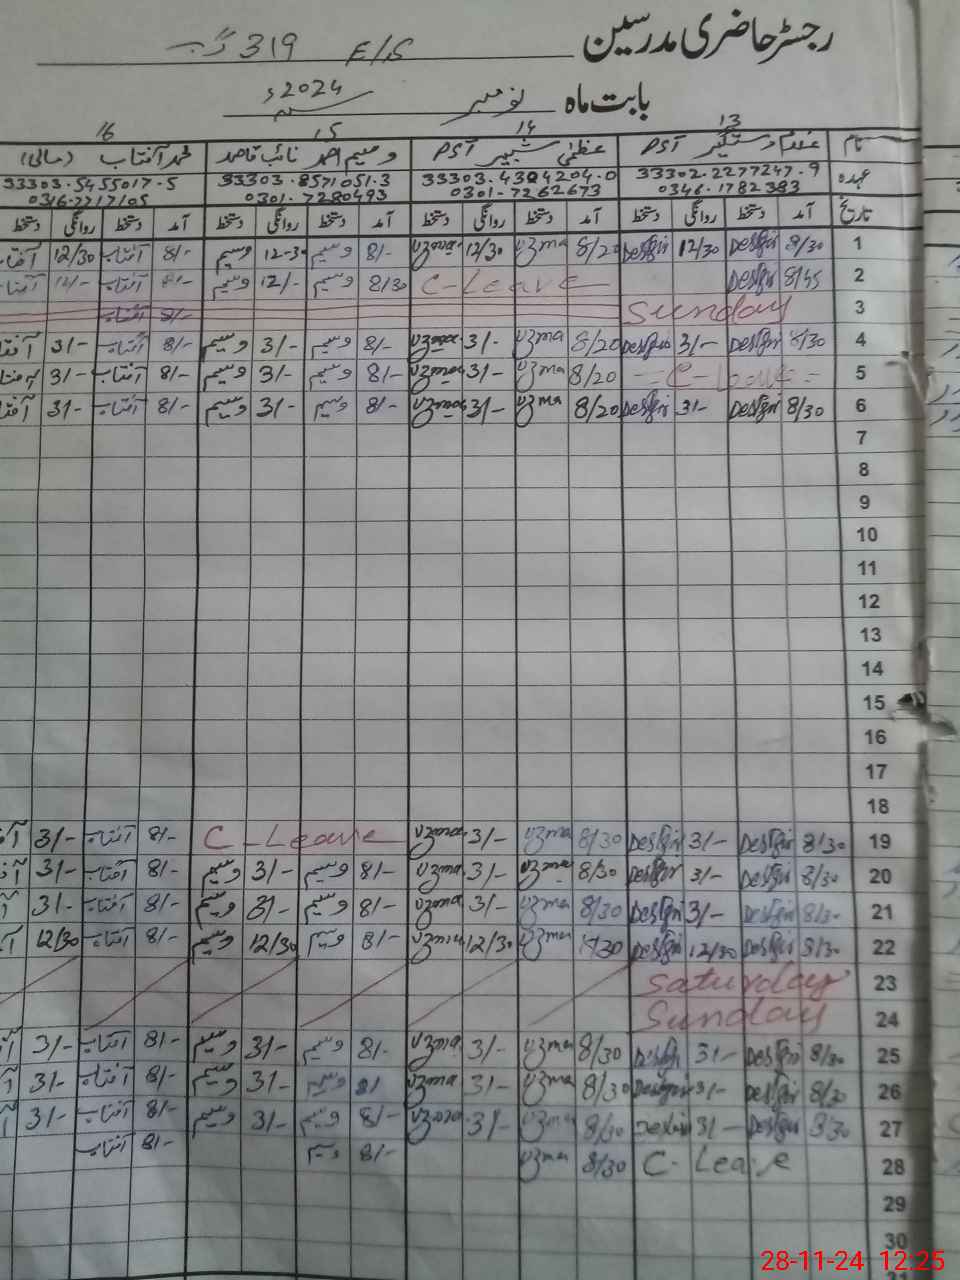 رجسٹر حاضری مدرسین E/S 319 گ ب
بابت ماہ نومبر سنہ 2024ء
13 14 15 16
نام غلام دستگیر PST عظمیٰ شبیر PST وسیم احمد نائب قاصد محمد آفتاب (مالی)
عہدہ 33302.2277247.9 33303.4304204.0 33303.8571051.3 33303.5455017-5
0346.1782383 0301-7262673 0301.7280493 0316-7717105
تاریخ آمد دستخط روانگی دستخط آمد دستخط روانگی دستخط آمد دستخط روانگی دستخط آمد دستخط روانگی
1 8/30 12/30 8/20 uzma 12/30 uzma 8/- وسیم 12-30 وسیم 8/- آفتاب 12/30
2 8/45 C-Leave 8/30 وسیم 12/- وسیم 8/- آفتاب 12/-
3 Sunday 8/- آفتاب
4 8/30 3/- 8/20 uzma 3/- uzma 8/- وسیم 3/- وسیم 8/- آفتاب 3/-
5 C-Leave 8/20 uzma 3/- uzma 8/- وسیم 3/- وسیم 8/- آفتاب 3/-
6 8/30 3/- 8/20 uzma 3/- uzma 8/- وسیم 3/- وسیم 8/- آفتاب 3/-
7
8
9
10
11
12
13
14
15
16
17
18
19 8/30 3/- 8/30 uzma 3/- uzma C-Leave 8/- آفتاب 3/-
20 8/30 3/- 8/30 uzma 3/- uzma 8/- وسیم 3/- وسیم 8/- آفتاب 3/-
21 8/30 3/- 8/30 uzma 3/- uzma 8/- وسیم 3/- وسیم 8/- آفتاب 3/-
22 8/30 12/30 8/30 uzma 12/30 uzma 8/- وسیم 12/30 وسیم 8/- آفتاب 12/30
23 Saturday
24 Sunday
25 8/30 3/- 8/30 uzma 3/- uzma 8/- وسیم 3/- وسیم 8/- آفتاب 3/-
26 8/30 3/- 8/30 uzma 3/- uzma 8/- وسیم 3/- وسیم 8/- آفتاب 3/-
27 8/30 3/- 8/30 uzma 3/- uzma 8/- وسیم 3/- وسیم 8/- آفتاب 3/-
28 C-Leave 8/30 uzma 8/- وسیم 8/- آفتاب
29
30
28-11-24 12:25